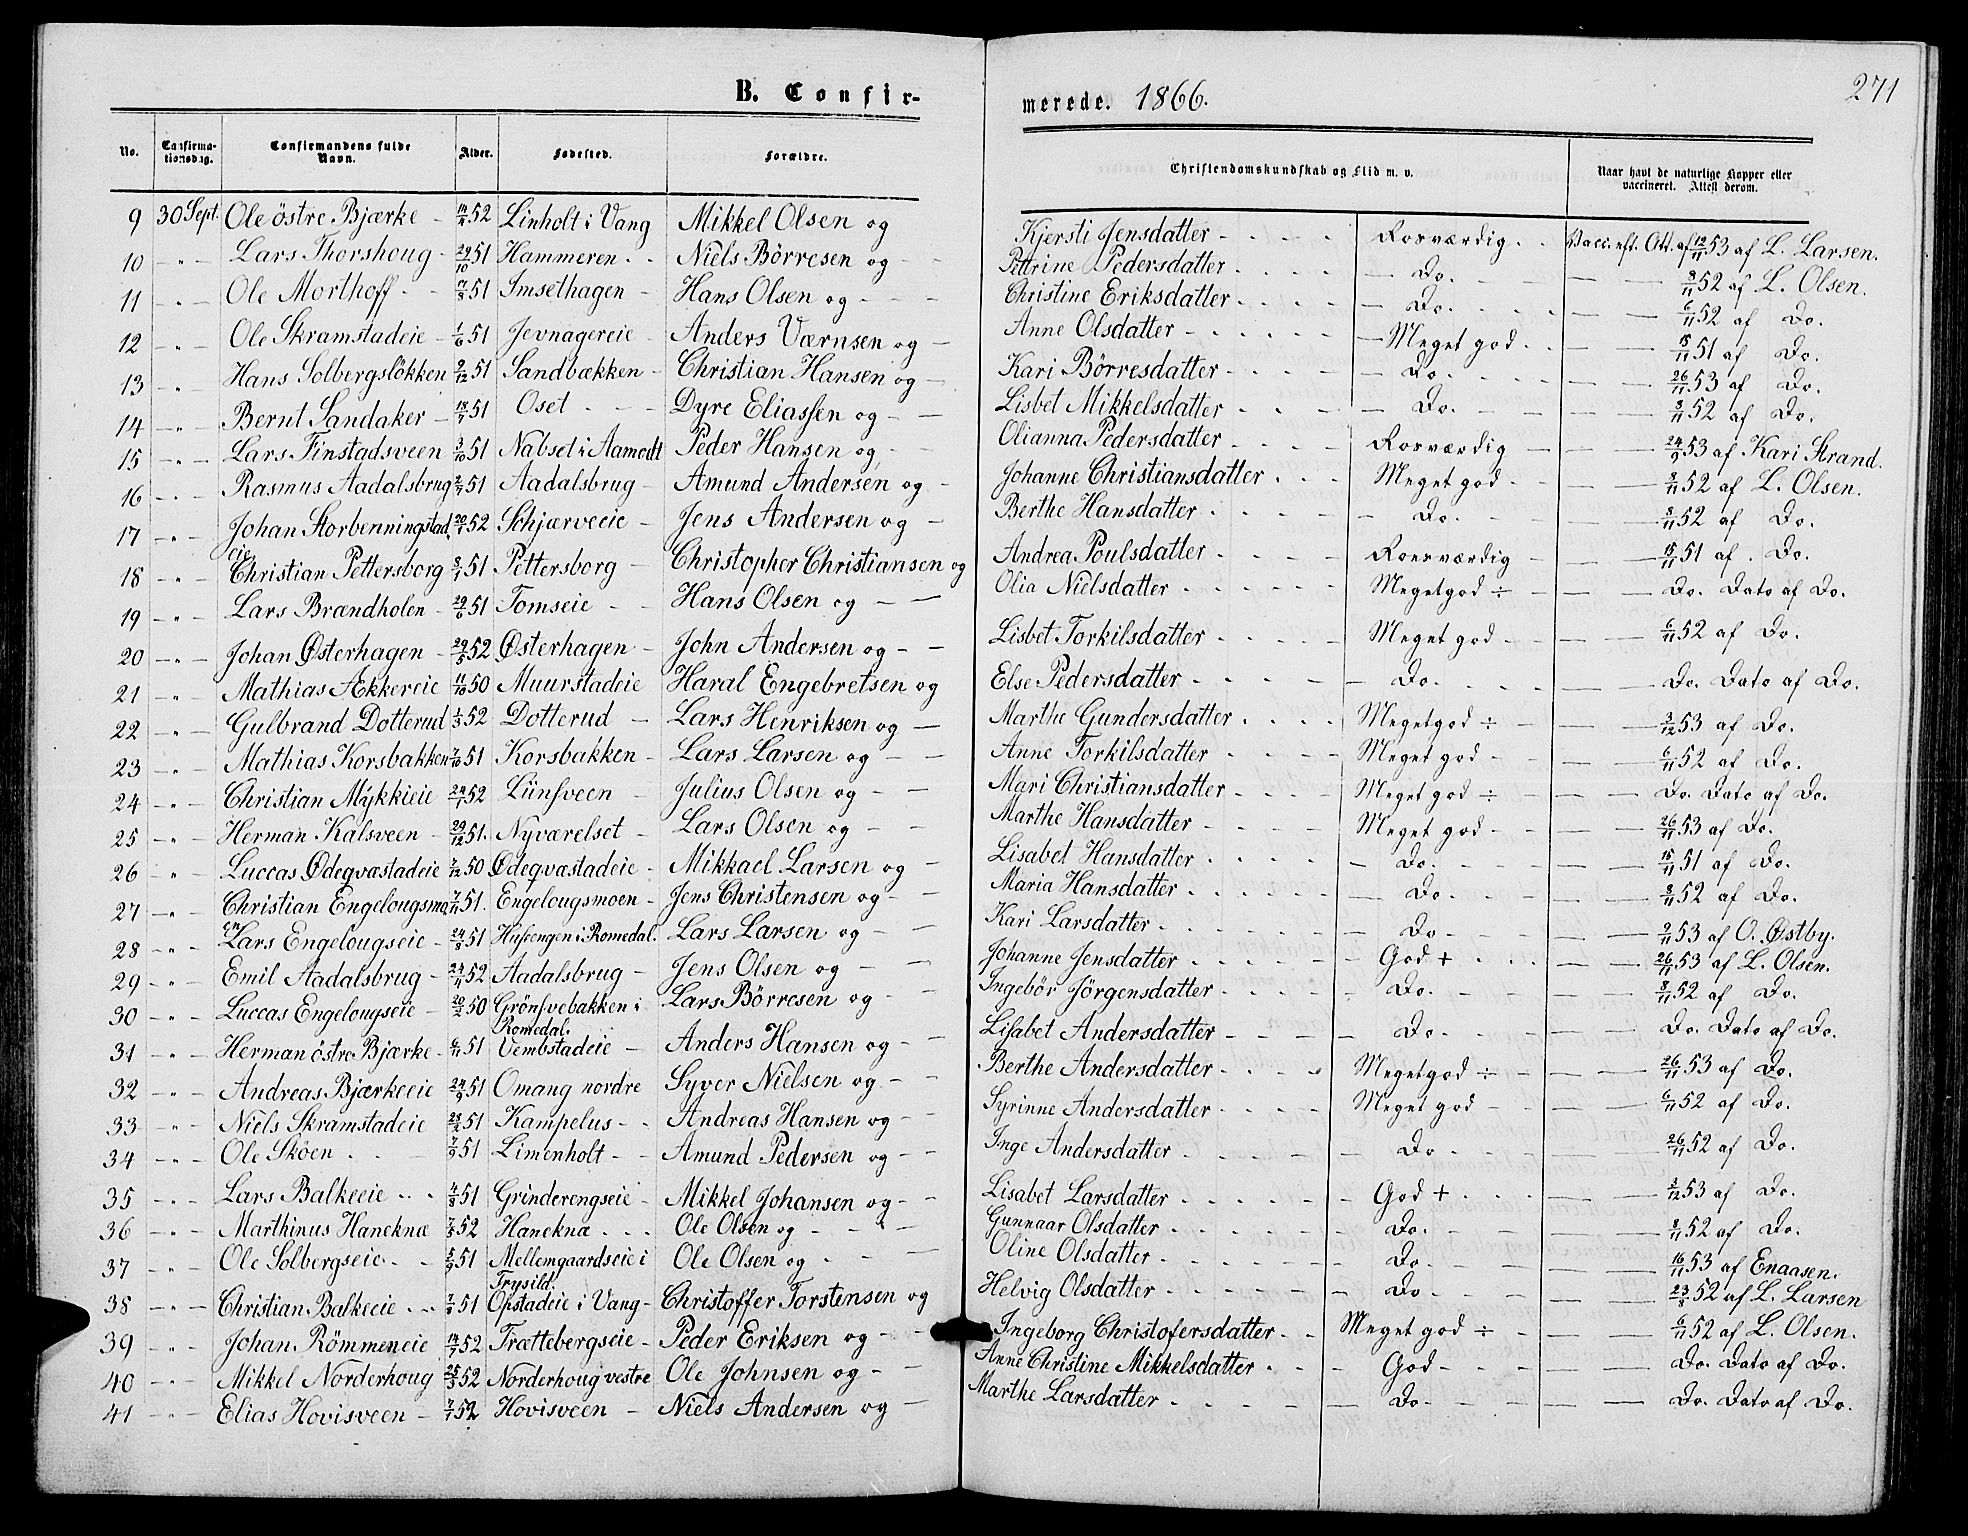 B. Confir-
merede. 1866.
271
No. Confirma-tionsdag. Confirmandens fulde Navn. Alder. Fødested. Forældre. Christendomskundskab og Flid m. v. Naar havt de naturlige Kopper eller vaccineret. Attest derom.
9 30 Sept. Ole östre Bjærke - 52 Linholt i Vang Mikkel Olsen og Kjersti Jensdatter - - - - Rosværdig - - Vacc. eft. Att. af 12/11 53 af L. Larsen.
10 - " - Lars Thorshoug - 29/10 51 Hammeren - - Niels Börresen og - - Pettrine Pedersdatter - - - - - Do. - - - — — 8/11 52 af L. Olsen.
11 - " - Ole Morthoff - - 17/8 51 Imsethagen - Hans Olsen og - - - Christine Eriksdatter - - - - - Do. - - - — — 6/11 52 af Do.
12 - " - Ole Skramstadeie - 1/6 51 Jevnagereie - Anders Værnsen og - Anne Olsdatter - - - - - - Meget god - - — — 15/11 51 af Do.
13 - " Hans Solbergslökken 9/12 51 Sandbækken - Christian Hansen og - Kari Börresdatter - - - - - Do. - - - — — 26/11 53 af Do.
14 - " - Bernt Sandaker - 18/7 51 Oset - - - Dyre Eliassen og - - Lisbet Mikkelsdatter - - - - Do. - - - — — 8/11 52 af Do.
15 - " - Lars Finstadsveen 3/10 51 Nabset i Aamodt Peder Hansen og - - Olianna Pedersdatter - - - Rosværdig - — — 24/9 53 af Kari Strand.
16 - " - Rasmus Aadalsbrug 2/7 51 Aadalsbrug - Amund Andersen og - Johanne Christiansdatter - - - Meget god - - — — 8/11 52 af L. Olsen.
17 - " - Johan Storbenningstadeie 20/1 52 Schjærveeie - Jens Andersen og - Berthe Hansdatter - - - - - Do. - - - — — 8/11 52 af Do.
18 - " - Christian Pettersborg 51 Pettersborg - Christopher Christiansen og Andrea Poulsdatter - - - - Roesværdig - — — 15/11 51 af Do.
19 - " - Lars Brændholen - 29/6 51 Tomseie - - Hans Olsen og - - Olia Nielsdatter - - - - - Megetgod ÷ - — — Do. Dato af Do.
20 - " - Johan Østerhagen - 29/5 52 Østerhagen - John Andersen og - - Lisbet Torkilsdatter - - - - Meget god - - — — 6/11 52 af Do.
21 - " - Mathias Ækkereie 11/10 50 Muurstadeie Haral Engebretsen og Else Pedersdatter - - - - - Do. - - - — — Do. Dato af Do.
22 - " - Gulbrand Dotterud 1/3 52 Dotterud - Lars Henriksen og - Marthe Gundersdatter - - - - Megetgod ÷ - — — 3/12 53 af Do.
23 - " - Mathias Korsbakken 7/10 51 Korsbakken - Lars Larsen og - - Anne Torkilsdatter - - - - Meget god - - — — 6/11 52 af Do.
24 - " - Christian Mÿkkieie 24/1 52 Lünsveen - Julius Olsen og - - Mari Christiansdatter - - - - Meget god ÷ - — — Do. Dato af Do.
25 - " - Herman Kalsveen - 29/12 51. Nyværelset - Lars Olsen og - - Marthe Hansdatter - - - - Meget god - - — — 26/11 53 af Do.
26 - " - Luccas Ødegvæstadeie 7/12 50 Ødegvæstadeie - Mikkael Larsen og - Lisabet Hansdatter - - - - - Do. - - - — — 15/11 51 af Do.
27 - " - Christian Engelougsmoen 7/11 51. Engelougsmoen - Jens Christensen og - Maria Hansdatter - - - - - Do. - - - — — 8/11 52 af Do.
28 - " - Lars Engelougseie - 24/8 51 Husengen i Romedal. Lars Larsen og - - Kari Larsdatter - - - - - Do - - - — — 9/11 53 af O. Østby.
29 - " - Emil Aadalsbrug - 24/11 52 Aadalsbrug - Jens Olsen og - - Johanne Jensdatter - - - - - God + - - - — — 26/11 53 af L. Olsen.
30 - " - Luccas Engelougseie - 20/2 50 Grönsvebakken i Romedal. Lars Börresen og - - Ingebör Jörgensdatter - - - - Do. - - - — — 8/11 52 af Do.
31 - " - Herman östre Bjærke - 6/11 51 Vembstadeie - Anders Hansen og - - Lisabet Andersdatter - - - - Do - - - — — Do. Dato af Do.
32 - " - Andreas Bjærkeeie 24/9 51 Omang nordre Syver Nielsen og - - Berthe Andersdatter - - - - Megetgod ÷ - — — 26/11 53 af Do.
33 - " - Niels Skramstadeie 51 Kampelus - - Andreas Hansen og - - Syrinne Andersdatter - - - - Meget god - - — — 6/11 52 af Do.
34 - " - Ole Sköen - - - 7/9 51 Limenholt - - Amund Pedersen og - - Inge Andersdatter - - - - - Do - - - — — 26/11 52 af Do.
35 - " - Lars Balkeeie - - 4/8 51 Grinderengseie - Mikkel Johansen og - - Lisabet Larsdatter - - - - - God + - - - — — 3/12 53 af Do.
36 - " - Marthinus Haneknæ 7/5 52 Haneknæ - - - Ole Olsen og - - - Gunnaar Olsdatter - - - - - Do. - - - — — 8/11 52 af Do.
37 - " - Ole Solbergseie - - 5/9 51 Mellemgaardseie i Trysild. Ole Olsen og - - Oline Olsdatter - - - - - Do - - - — — 16/11 53 af Enaasen.
38 - " - Christian Balkeeie - - 51 Opstadeie i Vang - Christoffer Torstensen og Helvig Olsdatter - - - - - Do - - - — — 23/8 52 af L. Larsen
39 - " - Johan Römmeneie 14/7 52 Trættebergseie - Peder Eriksen og - - Ingeborg Christofersdatter - - Meget god ÷ - — — 6/11 52 af L. Olsen.
40 - " - Mikkel Norderhoug 25/3 52 Norderhoug vestre Ole Johnsen og - - Anne Christine Mikkelsdatter - - - God - - - — — Do. Dato af Do.
41 - " - Elias Hovisveen - 7/1 52 Hovisveen - Niels Andersen og - Marthe Larsdatter - - - - - Do - - - — — Do. Dato af Do.